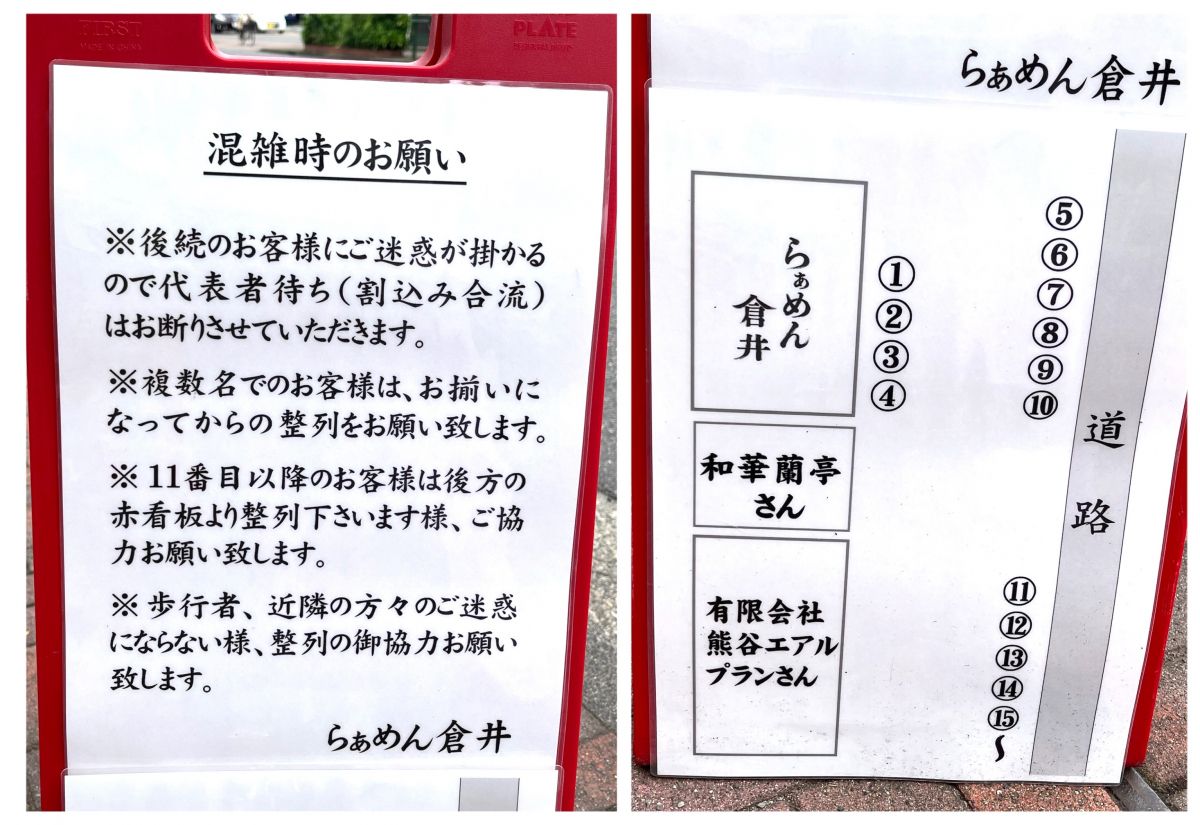 FIRST
MADE IN CHINA
PLATE
混雑時のお願い
※後続のお客様にご迷惑が掛かる
ので代表者待ち（割込み合流）
はお断りさせていただきます。
※複数名でのお客様は、お揃いに
なってからの整列をお願い致します。
※11番目以降のお客様は後方の
赤看板より整列下さいます様、ご協
力お願い致します。
※歩行者、近隣の方々のご迷惑
にならない様、整列の御協力お願い
致します。
らぁめん倉井
らぁめん倉井
らぁめん
倉井
①
②
③
④
⑤
⑥
⑦
⑧
⑨
⑩
道路
和華蘭亭
さん
有限会社
熊谷エアル
プランさん
⑪
⑫
⑬
⑭
⑮
〜